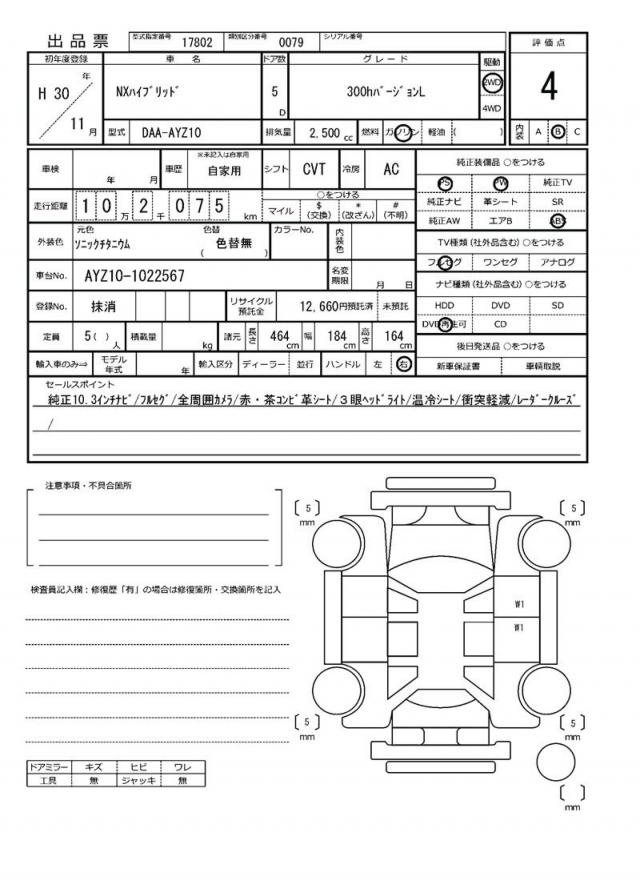 出品票 型式指定番号 17802 類別区分番号 0079 シリアル番号
評価点
初年度登録 車名 ドア数 グレード 駆動
H 30 年 NXハイブリッド 5 D 300hバージョンL 2WD 4
11 月 4WD
型式 DAA-AYZ10 排気量 2,500 cc 燃料 ガソリン 軽油 ( ) 内装 A B C
車検 年 月 車歴 ※未記入は自家用 自家用 シフト CVT 冷房 AC
純正装備品 ○をつける
PS PW 純正TV
純正ナビ 革シート SR
純正AW エアB ABS
走行距離 1 0 万 2 千 0 7 5 km ○をつける
マイル $ (交換) * (改ざん) # (不明)
TV種類(社外品含む)○をつける
フルセグ ワンセグ アナログ
外装色 元色 ソニックチタニウム 色替 ( 色替無 ) カラーNo. 内装色
車台No. AYZ10-1022567 名変期限 月 日
ナビ種類(社外品含む)○をつける
HDD DVD SD
DVD再生可 CD
登録No. 抹消 リサイクル預託金 12,660円預託済 未預託
定員 5( ) 人 積載量 kg 諸元 長さ 464 cm 幅 184 cm 高さ 164 cm
後日発送品 ○をつける
新車保証書 車輌取説
輸入車のみ⇒ モデル年式 年 輸入区分 ディーラー 並行 ハンドル 左 右
セールスポイント
純正10.3インチナビ/フルセグ/全周囲カメラ/赤・茶コンビ革シート/3眼ヘッドライト/温冷シート/衝突軽減/レーダークルーズ
/
注意事項・不具合箇所
検査員記入欄:修復歴「有」の場合は修復箇所・交換箇所を記入
[ 5 ] mm [ 5 ] mm
W1
W1
[ 5 ] mm [ 5 ] mm
[ ] mm
ドアミラー キズ ヒビ ワレ
工具 無 ジャッキ 無